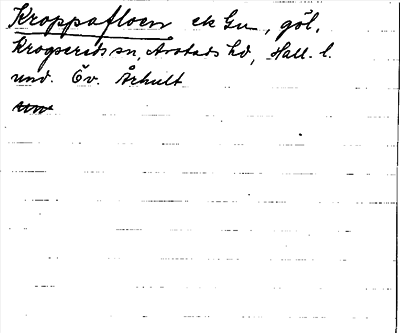 Kroppafloen ek Gu, göl,
Krogsereds sn, Årstads hd, Hall. l.
und. Öv. Århult